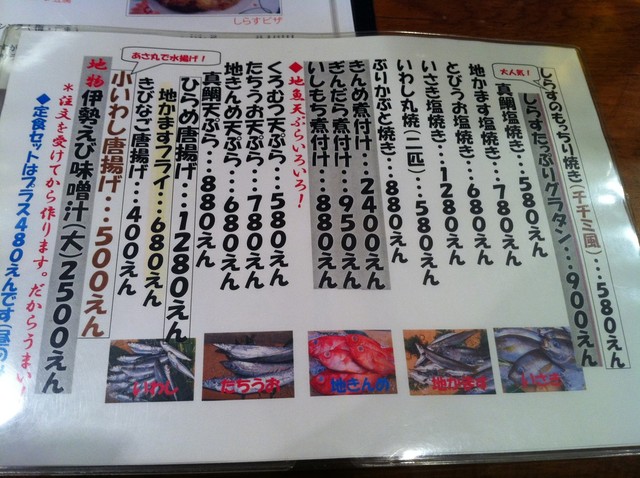 しらすピザ
しらすのもっちり焼き(チヂミ風)・・・580えん
大人気!
しらすたっぷりグラタン・・・900えん
真鯛塩焼き・・・580えん
地かます塩焼き・・・780えん
とびうお塩焼き・・・1280えん
いさき塩焼き・・・580えん
いわし丸焼(二匹)・・・580えん
ぶりかぶと焼き・・・880えん
きんめ煮付け・・・2400えん
ぎんだら煮付け・・・950えん
いしもち煮付け・・・880えん
◆地魚天ぷらいろいろ!
くろむつ天ぷら・・・580えん
たちうお天ぷら・・・780えん
地きんめ天ぷら・・・680えん
真鯛天ぷら・・・880えん
あさ丸で水揚げ!
ひらめ唐揚げ・・・1280えん
地かますフライ・・・680えん
きびなご唐揚げ・・・400えん
小いわし唐揚げ・・・500えん
地物 伊勢えび味噌汁(大)2500えん
*注文を受けてから作ります。だからうまい!
◆定食セットはプラス480えんです(昼の
いわし
たちうお
地きんめ
地かます
いさき